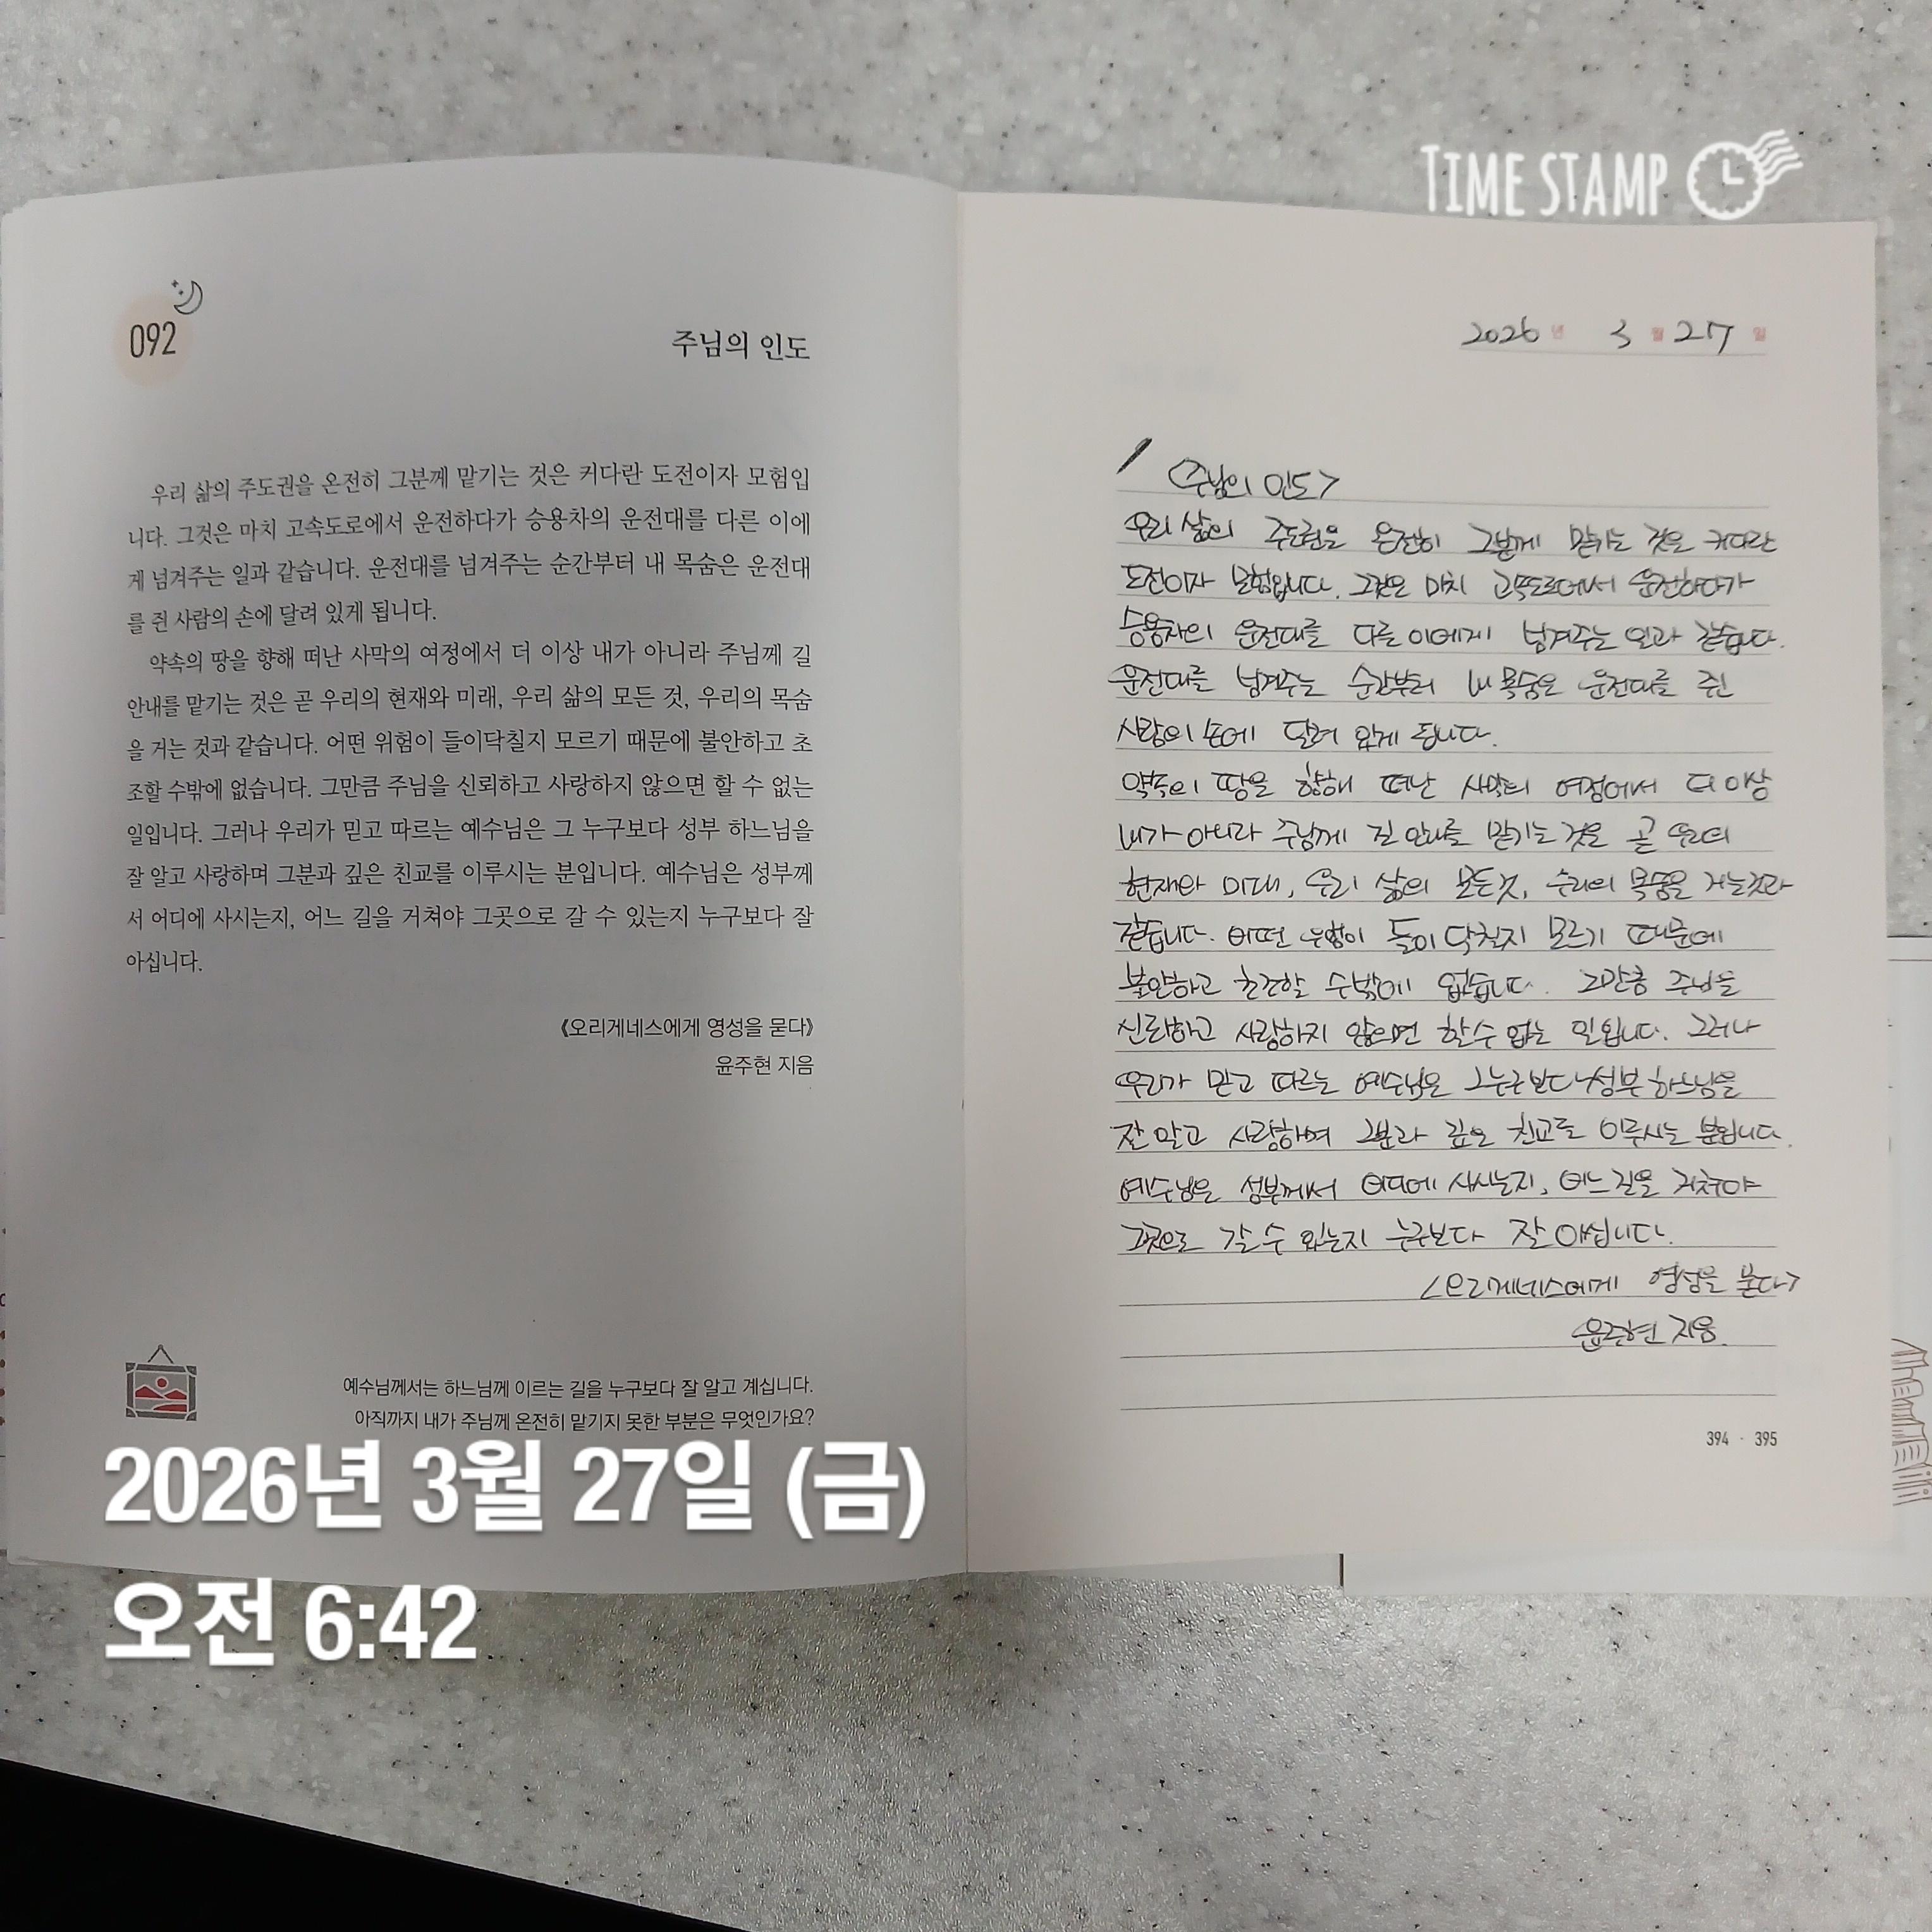 TIME STAMP
092
주님의 인도
우리 삶의 주도권을 온전히 그분께 맡기는 것은 커다란 도전이자 모험입
니다. 그것은 마치 고속도로에서 운전하다가 승용차의 운전대를 다른 이에
게 넘겨주는 일과 같습니다. 운전대를 넘겨주는 순간부터 내 목숨은 운전대
를 쥔 사람의 손에 달려 있게 됩니다.
약속의 땅을 향해 떠난 사막의 여정에서 더 이상 내가 아니라 주님께 길
안내를 맡기는 것은 곧 우리의 현재와 미래, 우리 삶의 모든 것, 우리의 목숨
을 거는 것과 같습니다. 어떤 위험이 들이닥칠지 모르기 때문에 불안하고 초
조할 수밖에 없습니다. 그만큼 주님을 신뢰하고 사랑하지 않으면 할 수 없는
일입니다. 그러나 우리가 믿고 따르는 예수님은 그 누구보다 성부 하느님을
잘 알고 사랑하며 그분과 깊은 친교를 이루시는 분입니다. 예수님은 성부께
서 어디에 사시는지, 어느 길을 거쳐야 그곳으로 갈 수 있는지 누구보다 잘
아십니다.
《오리게네스에게 영성을 묻다》
윤주현 지음
예수님께서는 하느님께 이르는 길을 누구보다 잘 알고 계십니다.
아직까지 내가 주님께 온전히 맡기지 못한 부분은 무엇인가요?
2026년 3월 27일
<주님의 인도>
우리 삶의 주도권을 온전히 그분께 맡기는 것은 커다란
도전이자 모험입니다. 그것은 마치 고속도로에서 운전하다가
승용차의 운전대를 다른 이에게 넘겨주는 일과 같습니다.
운전대를 넘겨주는 순간부터 내 목숨은 운전대를 쥔
사람의 손에 달려 있게 됩니다.
약속의 땅을 향해 떠난 사막의 여정에서 더 이상
내가 아니라 주님께 길 안내를 맡기는 것은 곧 우리의
현재와 미래, 우리 삶의 모든것, 우리의 목숨을 거는것과
같습니다. 어떤 위험이 들이 닥칠지 모르기 때문에
불안하고 초조할 수밖에 없습니다. 그만큼 주님을
신뢰하고 사랑하지 않으면 할수 없는 일입니다. 그러나
우리가 믿고 따르는 예수님은 그누구보다 성부 하느님을
잘 알고 사랑하며 그분과 깊은 친교를 이루시는 분입니다.
예수님은 성부께서 어디에 사시는지, 어느 길을 거쳐야
그곳으로 갈 수 있는지 누구보다 잘 아십니다.
<오리게네스에게 영성을 묻다>
윤주현 지음.
394 · 395
2026년 3월 27일 (금)
오전 6:42